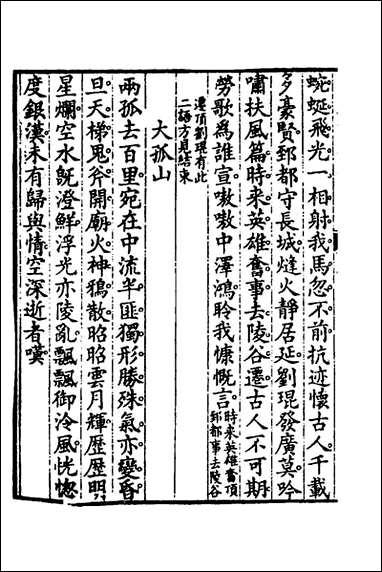 蜿蜒飛光一相射我馬忽不前抗迹懷古人千載
多豪賢郅都守長城燧火靜居延劉琨發廣莫吟
嘯扶風篇時来英雄奮事去陵谷遷古人不可期
勞歌為誰宣嗷嗷中澤鴻聆我慷慨言時来英雄奮頂
郅都事去陵谷
遷頂劉琨有此
二語方見結束
大孤山
兩孤去百里宛在中流半匪獨形勝殊氣亦變昏
旦天梯鬼斧開廟火神鴉散昭昭雲月輝歴歴明
星爛空水旣澄鮮浮光亦陵亂飄飄御泠風恍惚
度銀漢未有歸與情空深逝者嘆